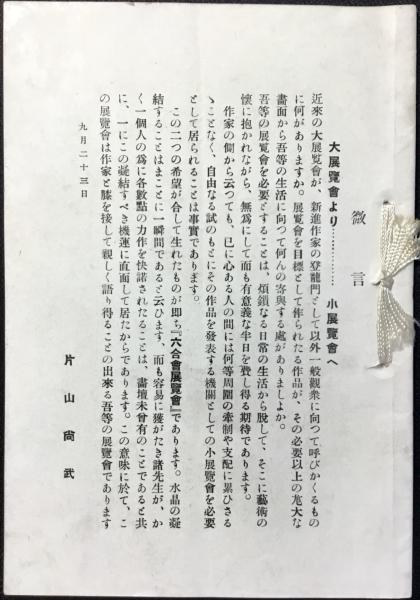 微言
大展覽會より…………小展覽會へ
近來の大展覽會が、新進作家の登龍門として以外一般觀衆に向つて呼びかくるもの
に何がありますか。展覽會を目標として作られたる作品が、その必要以上の尨大な
畫面から吾等の生活に向つて何んの寄與する處がありましよか。
吾等の展覽會を必要とすることは、煩鎖なる日常の生活から脱して、そこに藝術の
懷に抱かれながら、無爲にして而も有意義な半日を費し得る期待であります。
作家の側から云つても、已に心ある人の間には何等周圍の牽制や支配に累ひさる
ゝことなく、自由なる試のもとにその作品を發表する機關としての小展覽會を必要
として居られることは事實であります。
この二つの希望が合して生れたものが即ち『六合會展覽會』であります。水晶の凝
結することはまことに一瞬間であると云ひます、而も容易に獲がたき諸先生が、か
く一個人の爲に各數點の力作を快諾されたることは、畫壇未曾有のことであると共
に、一にこの凝結すべき機運に直面して居たからであります。この意味に於て、こ
の展覽會は作家と膝を接して親しく語り得ることの出來る吾等の展覽會であります
九月二十三日
片山尙武